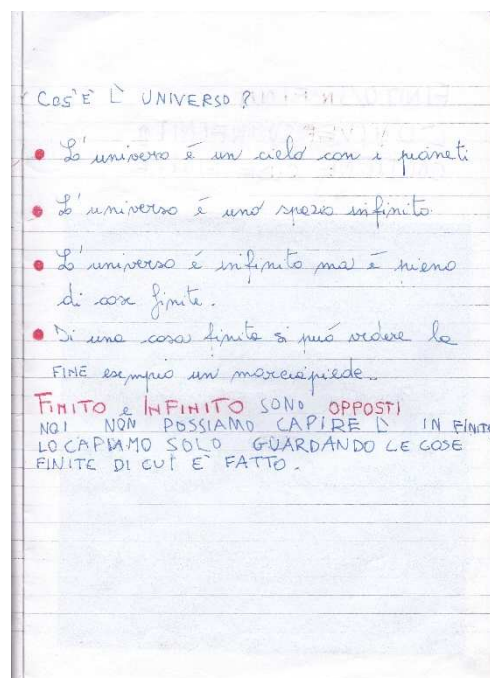 COS'E' L' UNIVERSO?
L'universo é un cielo con i pianeti
L'universo é uno spazio infinito.
L'universo é infinito ma é pieno
di cose finite.
Di una cosa finita si puó vedere la
FINE esempio un marciapiede.
FINITO e INFINITO SONO OPPOSTI
NOI NON POSSIAMO CAPIRE L' IN FINITO
LO CAPIAMO SOLO GUARDANDO LE COSE
FINITE DI CUI E' FATTO.